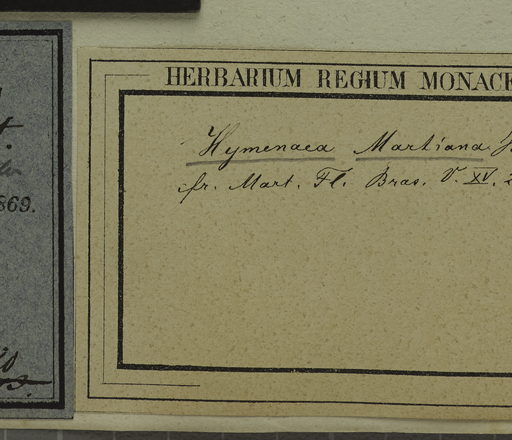 HERBARIUM REGIUM MONACE
Hymenaea Martiana
fr. Mart. Fl. Bras. V. XV. 2
869.